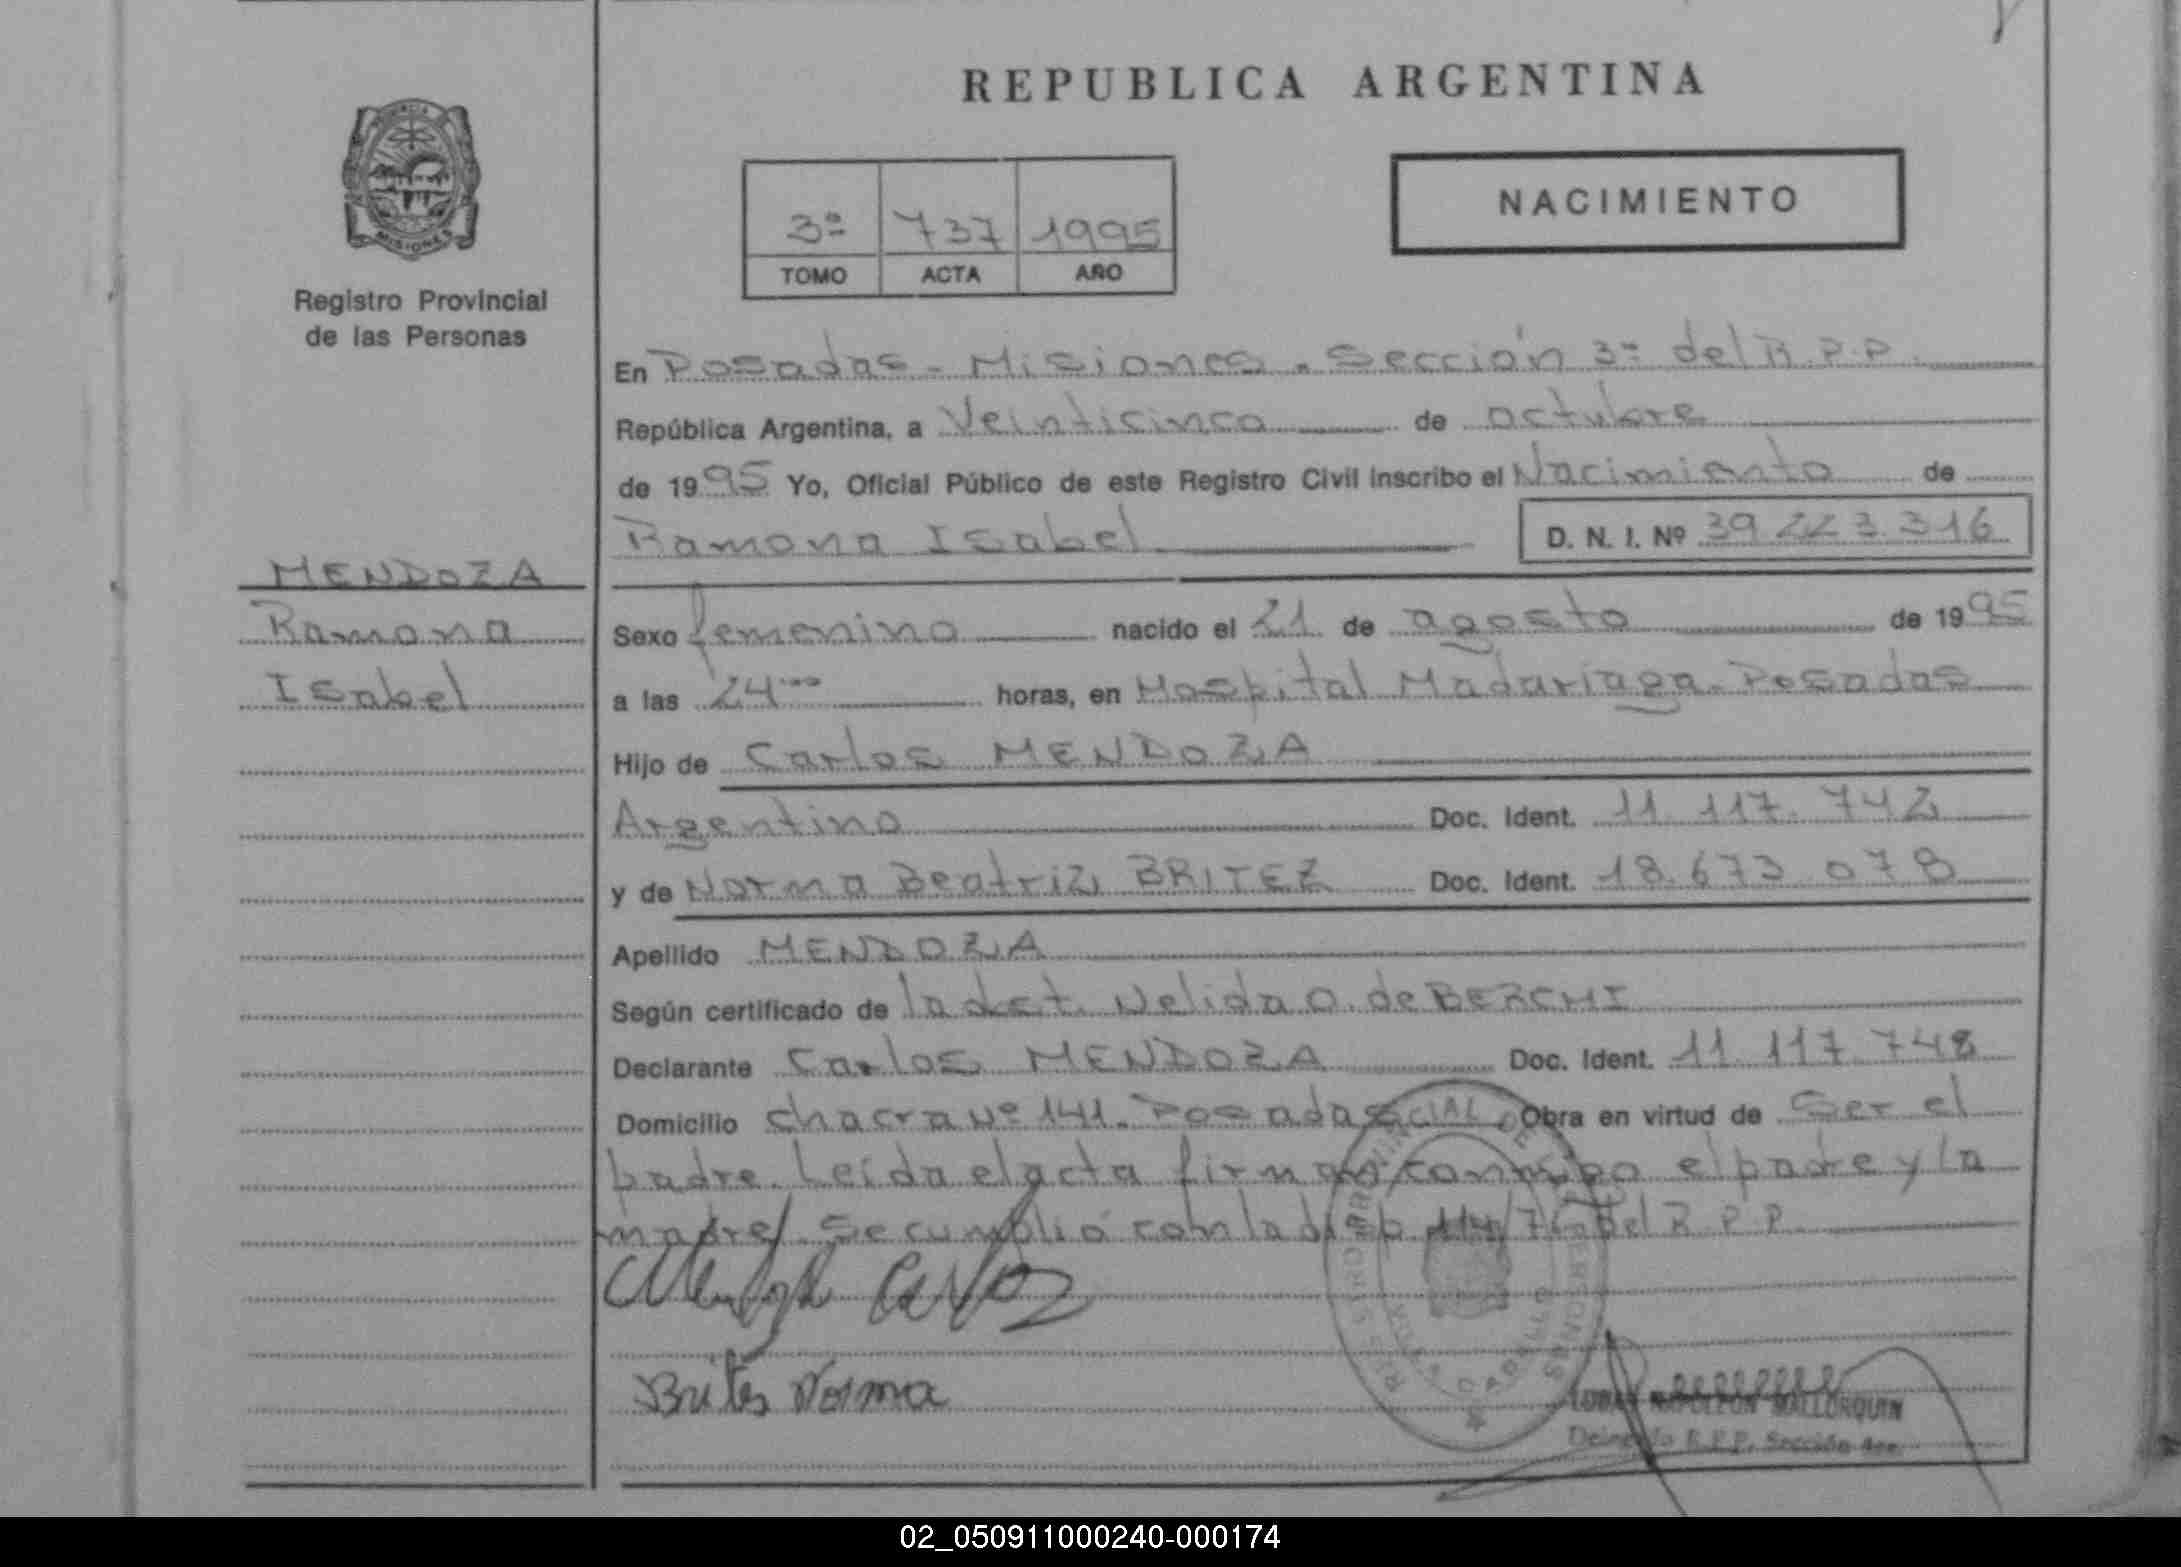 REPUBLICA ARGENTINA
PROVINCIA
MISIONES
Registro Provincial
de las Personas
3ª 737 1995
TOMO ACTA AÑO
NACIMIENTO
En Posadas - Misiones. Sección 3ª del R.P.P.
República Argentina, a Veinticinco de octubre
de 1995 Yo, Oficial Público de este Registro Civil inscribo el Nacimiento de
Ramona Isabel D. N. I. Nº 39 223 316
MENDOZA
Ramona
Isabel
Sexo femenino nacido el 21 de agosto de 1995
a las 24 horas, en Hospital Madariaga. Posadas
Hijo de Carlos MENDOZA
Argentino Doc. Ident. 11.117.742
y de Norma Beatriz BRITEZ Doc. Ident. 18.673.078
Apellido MENDOZA
Según certificado de la Nelida O. de BERCHI
Declarante Carlos MENDOZA Doc. Ident. 11.117.748
Domicilio chacra Nº 141. Posadas Obra en virtud de Ser el
padre. Leída el acta firman conmigo el padre y la
madre. Se cumplió con la disp. del R.P.P.
Mendoza Carlos
Brites Norma
NAPOLEON MALLORQUIN
R.P.P. Sección
02_050911000240-000174